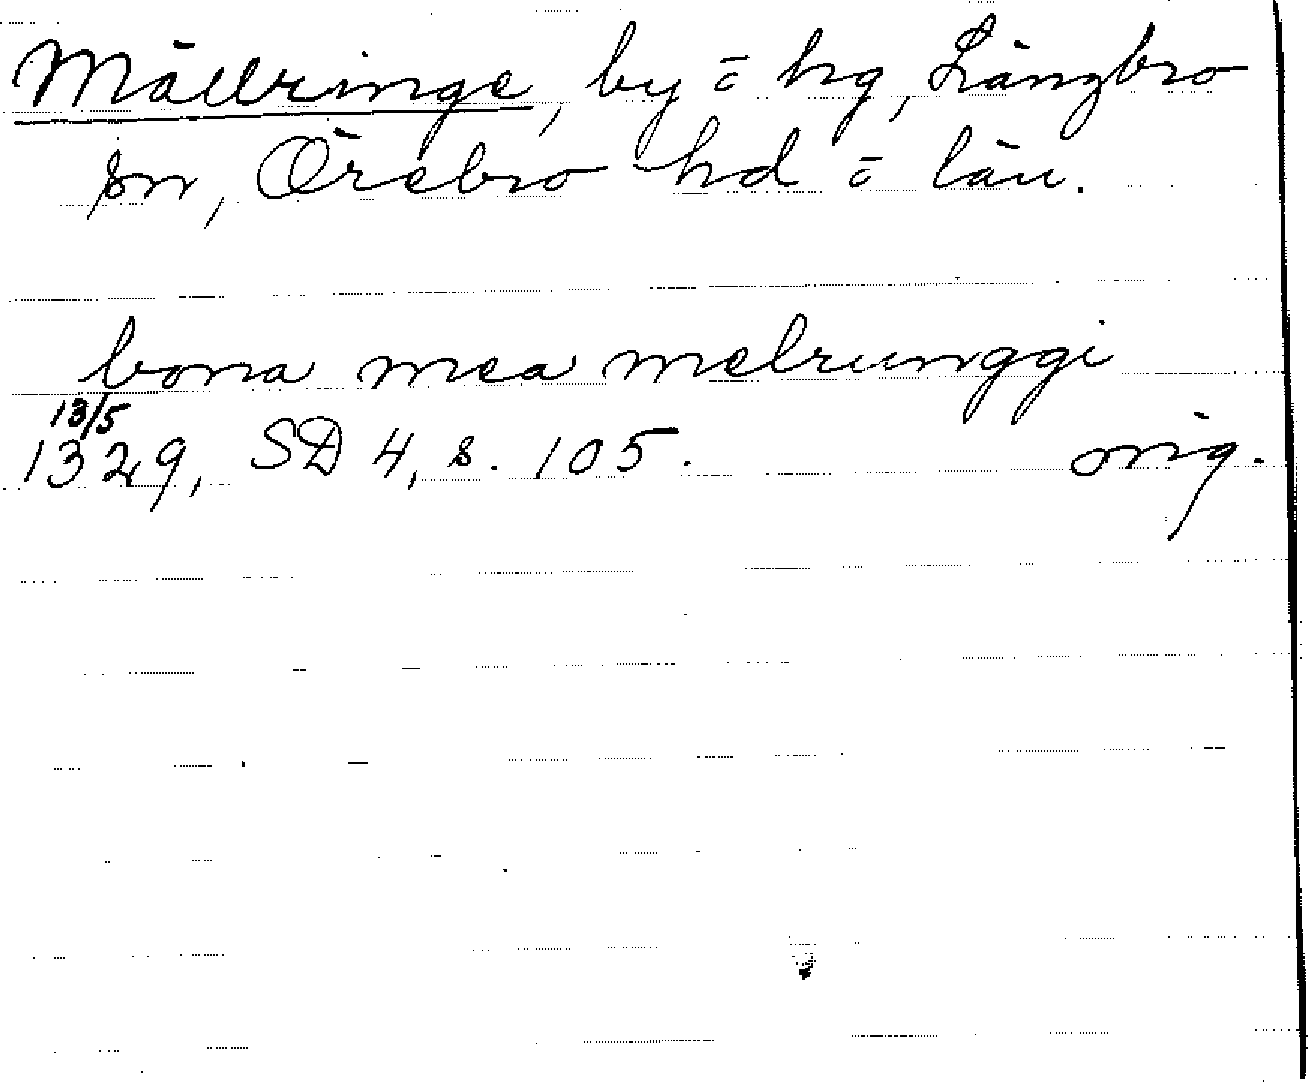 Mällringe, by o hg, Längbro
sn, Örebro hd o län.
bona mea melrunggi
13/5
1329, SD 4, s. 105. orig.